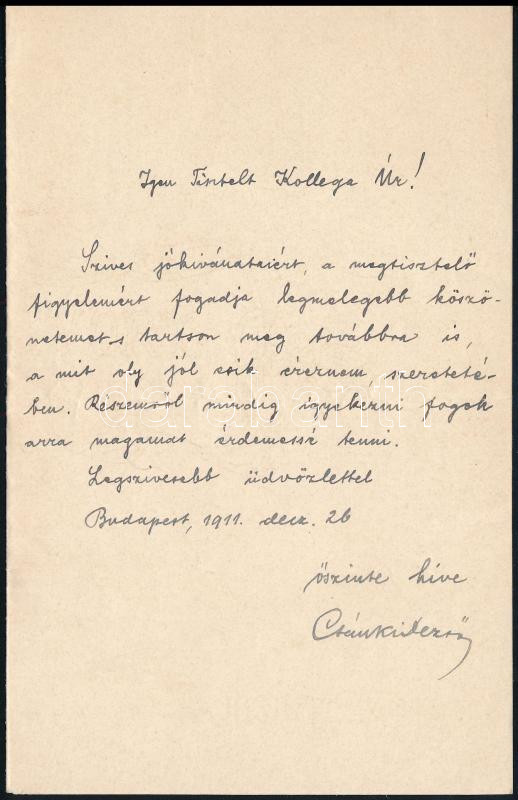 Igen Tisztelt Kollega Úr!
Szives jókivánataiért, a megtisztelő
figyelemért fogadja legmelegebb köszö-
netemet s tartson meg továbbra is,
a mit oly jól esik éreznem, szereteté-
ben. Részemről mindig igyekezni fogok
arra magamat érdemessé tenni.
Legszivesebb üdvözlettel
Budapest, 1911. decz. 26
őszinte híve
Csánki Dezső
darabanth